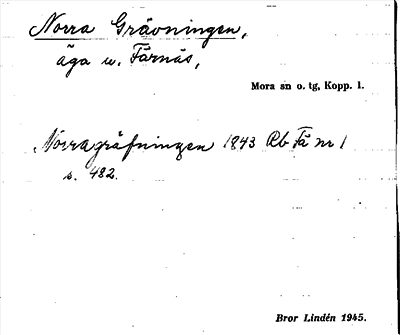 Norra Grävningen,
äga u. Färnäs,
Mora sn o. tg, Kopp. l.
Norragräfningen 1843 Rb Fä nr 1
s. 482.
Bror Lindén 1945.